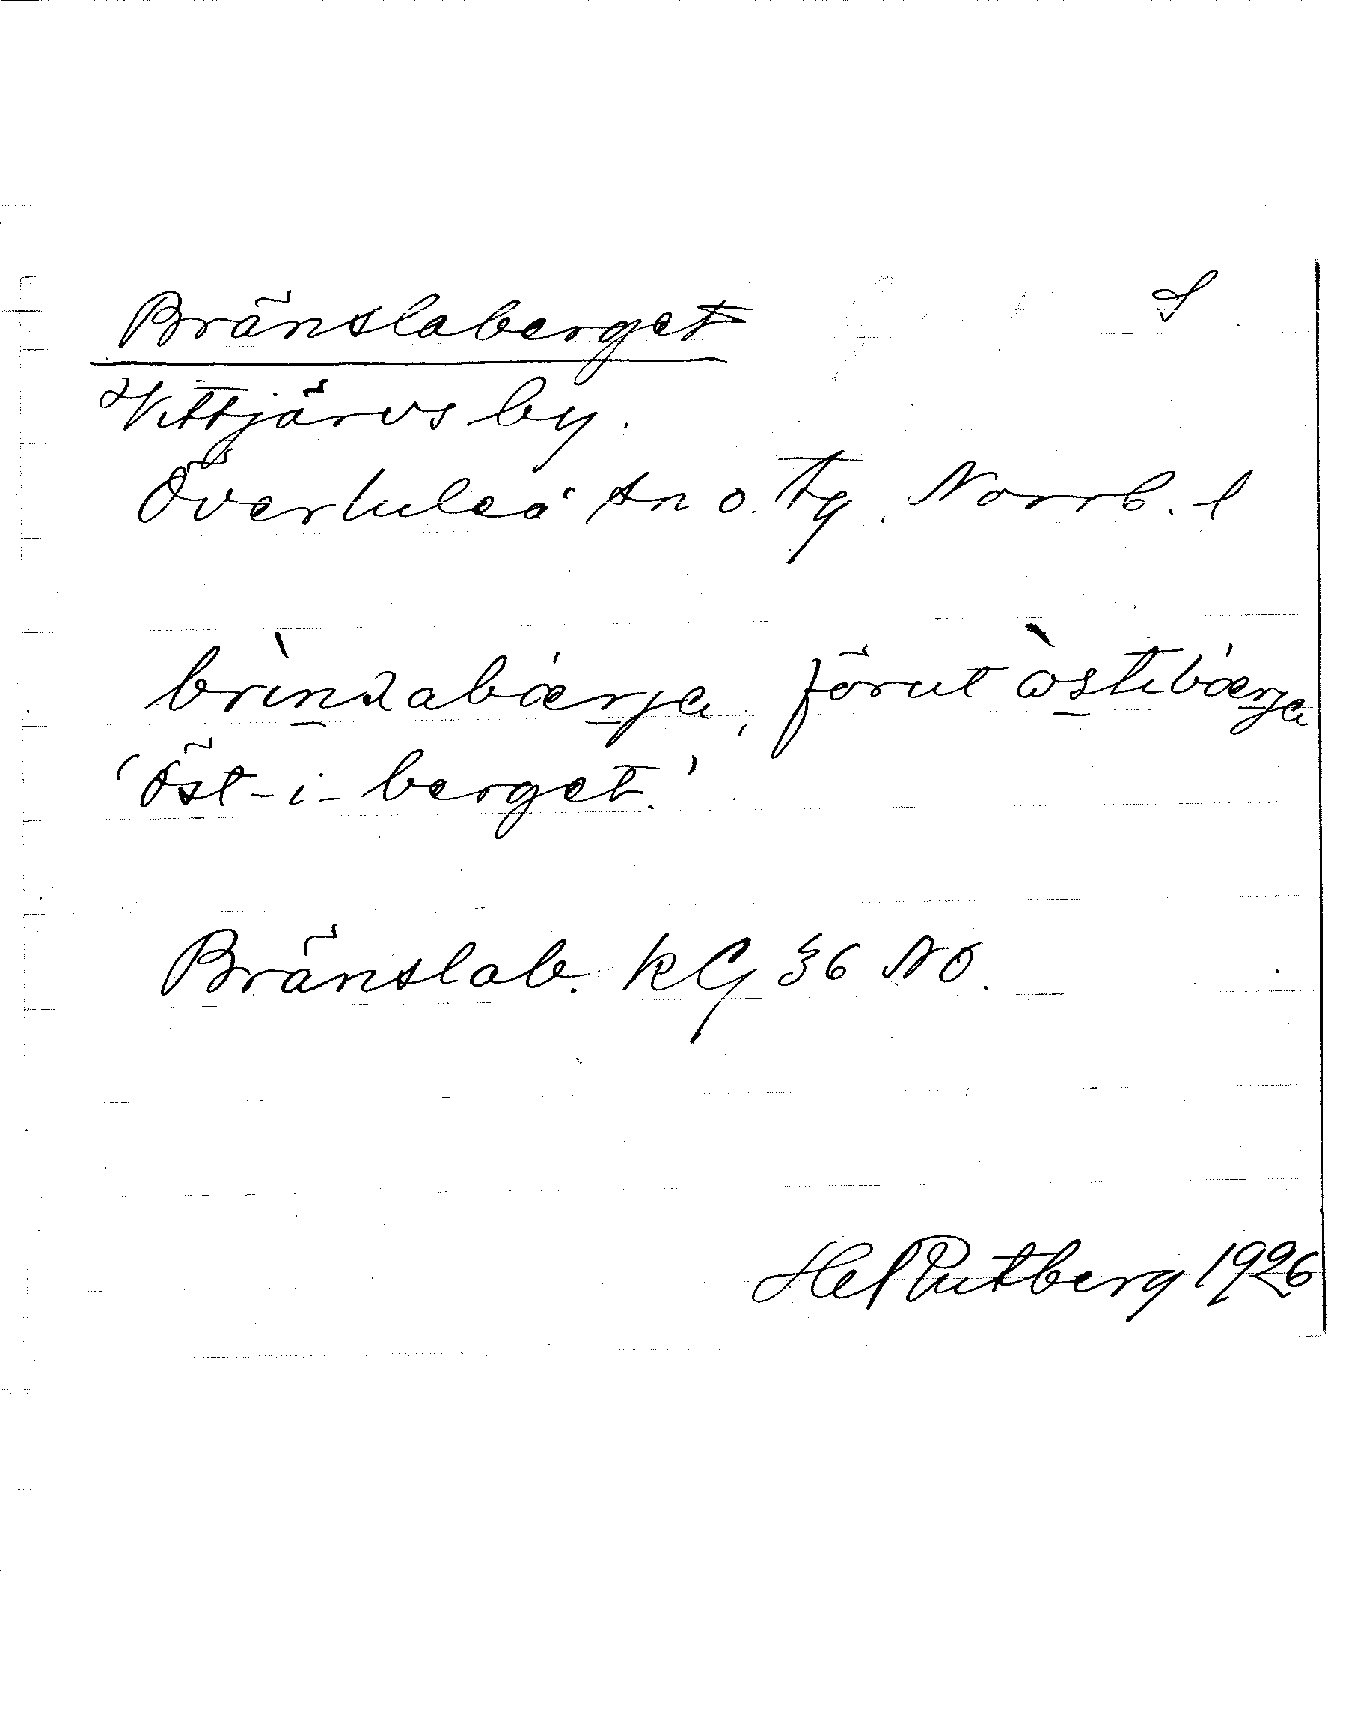 Bränslaberget S
Vittjärvs by.
Överluleå sn o. tg. Norrb. l
förut
'Öst-i-berget.'
Bränslab. KG 36 NO.
Hel Rutberg 1926